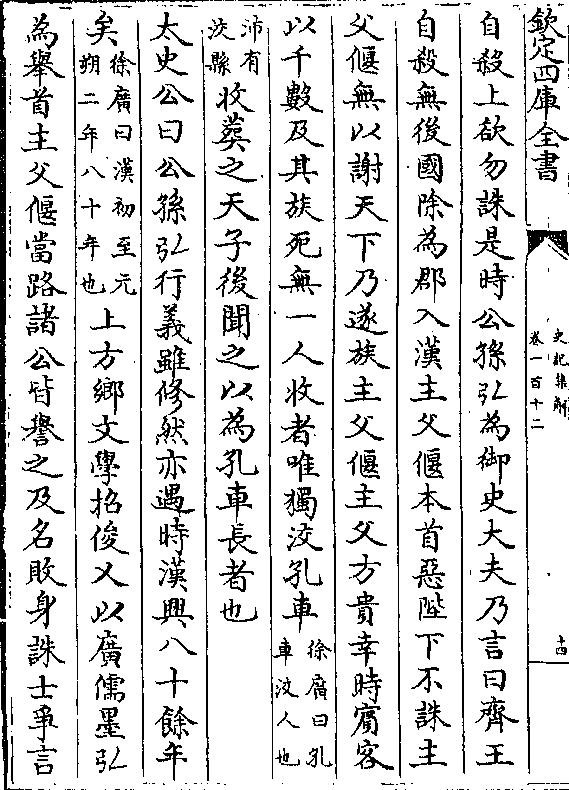 欽定四庫全書
史記集解
卷一百十二
十四
自殺上欲勿誅是時公孫弘為御史大夫乃言曰齊王
自殺無後國除為郡入漢主父偃本首惡陛下不誅主
父偃無以謝天下乃遂族主父偃主父方貴幸時賔客
以千數及其族死無一人收者唯獨洨孔車徐廣曰孔車洨人也
沛有洨縣收葬之天子後聞之以為孔車長者也
太史公曰公孫弘行義雖修然亦遇時漢興八十餘年
矣徐廣曰漢初至元朔二年八十年也上方鄉文學招俊乂以廣儒墨弘
為舉首主父偃當路諸公皆譽之及名敗身誅士爭言